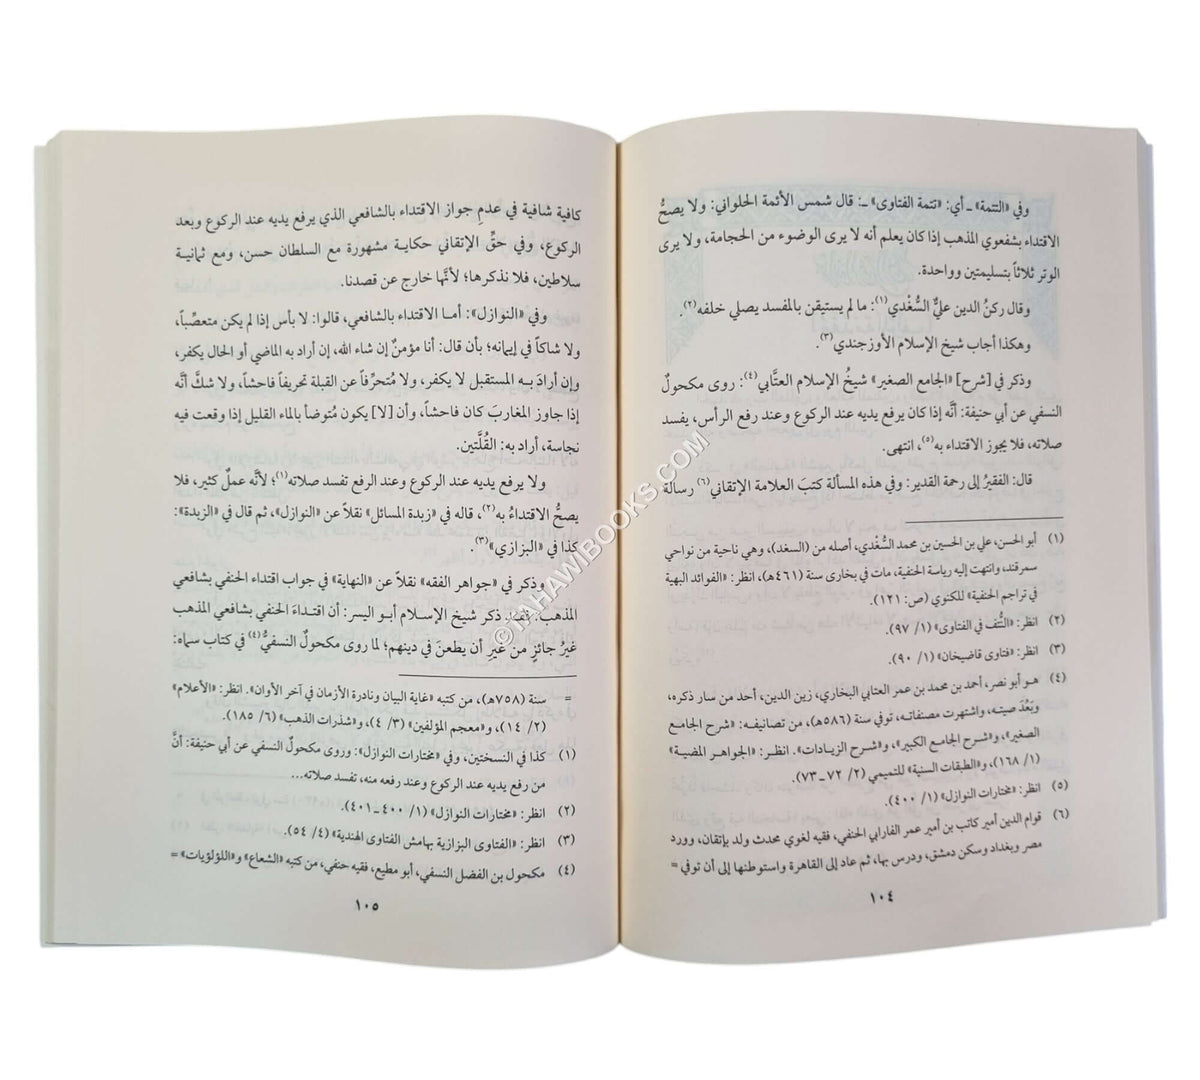 وفي «التتمة» ـ أي: «تتمة الفتاوى» ـ: قال شمس الأئمة الحلواني: ولا يصحُّ
الاقتداء بشفعوي المذهب إذا كان يعلم أنه لا يرى الوضوء من الحجامة، ولا يرى
الوتر ثلاثاً بتسليمتين وواحدة.
وقال ركنُ الدين عليٌّ السُّغْدي(١): ما لم يستيقن بالمفسد يصلي خلفه(٢).
وهكذا أجاب شيخ الإسلام الأوزجندي(٣).
وذكر في [شرح] «الجامع الصغير» شيخُ الإسلام العتَّابي(٤): روى مكحولٌ
النسفي عن أبي حنيفة: أنَّه إذا كان يرفع يديه عند الركوع وعند رفع الرأس، يفسد
صلاته، فلا يجوز الاقتداء به(٥)، انتهى.
قال: الفقيرُ إلى رحمة القدير: وفي هذه المسألة كتبَ العلامة الإتقاني(٦) رسالة
(١) أبو الحسن، علي بن الحسين بن محمد السُّغْدي، أصله من (السغد)، وهي ناحية من نواحي
سمرقند، وانتهت إليه رياسة الحنفية، مات في بخارى سنة (٤٦١هـ)، انظر: «الفوائد البهية
في تراجم الحنفية» للكنوي (ص: ١٢١).
(٢) انظر: «النُّتف في الفتاوى» (١/ ٩٧).
(٣) انظر: «فتاوى قاضيخان» (١/ ٩٠).
(٤) هو أبو نصر، أحمد بن محمد بن عمر العتابي البخاري، زين الدين، أحد من سار ذكره،
وبَعُدَ صيته، واشتهرت مصنفاته، توفي سنة (٥٨٦هـ)، من تصانيفه: «شرح الجامع
الصغير»، و«شرح الجامع الكبير»، و«شرح الزيادات». انظر: «الجواهر المضية»
(١/ ١٦٨)، و«الطبقات السنية» للتميمي (٢/ ٧٢ ـ ٧٣).
(٥) انظر: «مختارات النوازل» (١/ ٤٠٠).
(٦) قوام الدين أمير كاتب بن أمير عمر الفارابي الحنفي، فقيه لغوي محدث ولد بإتقان، وورد
مصر وبغداد وسكن دمشق، ودرس بها، ثم عاد إلى القاهرة واستوطنها إلى أن توفي =
١٠٤
كافية شافية في عدمِ جواز الاقتداء بالشافعي الذي يرفع يديه عند الركوع وبعد
الركوع، وفي حقِّ الإتقاني حكاية مشهورة مع السلطان حسن، ومع ثمانية
سلاطين، فلا نذكرها؛ لأنَّها خارج عن قصدنا.
وفي «النوازل»: أما الاقتداء بالشافعي، قالوا: لا بأس إذا لم يكن متعصِّباً،
ولا شاكاً في إيمانه؛ بأن قال: أنا مؤمنٌ إن شاء الله، إن أراد به الماضي أو الحال يكفر،
وإن أرادَ به المستقبل لا يكفر، ولا مُتحرِّفاً عن القبلة تحريفاً فاحشاً، ولا شكَّ أنَّه
إذا جاوز المغاربَ كان فاحشاً، وأن [لا] يكون مُتوضأ بالماء القليل إذا وقعت فيه
نجاسة، أراد به: القُلَّتين.
ولا يرفع يديه عند الركوع وعند الرفع تفسد صلاته(١)؛ لأنَّه عملٌ كثير، فلا
يصحُّ الاقتداءُ به(٢)، قاله في «زبدة المسائل» نقلاً عن «النوازل»، ثم قال في «الزبدة»:
كذا في «البزازي»(٣).
وذكر في «جواهر الفقه» نقلاً عن «النهاية» في جواب اقتداء الحنفي بشافعي
المذهب: فقد ذكر شيخ الإسلام أبو اليسر: أن اقتداءَ الحنفي بشافعي المذهب
غيرُ جائزٍ من غير أن يطعنَ في دينهم؛ لما روى مكحولٌ النسفيُّ(٤) في كتاب سماه:
= سنة (٧٥٨هـ)، من كتبه «غاية البيان ونادرة الأزمان في آخر الأوان». انظر: «الأعلام»
(٢/ ١٤)، و«معجم المؤلفين» (٣/ ٤)، و«شذرات الذهب» (٦/ ١٨٥).
(١) كذا في النسختين، وفي «مختارات النوازل»: وروى مكحولٌ النسفي عن أبي حنيفة: أنَّ
من رفع يديه عند الركوع وعند رفعه منه، تفسد صلاته...
(٢) انظر: «مختارات النوازل» (١/ ٤٠٠ ـ ٤٠١).
(٣) انظر: «الفتاوى البزازية بهامش الفتاوى الهندية» (٤/ ٥٤).
(٤) مكحول بن الفضل النسفي، أبو مطيع، فقيه حنفي، من كتبه «الشعاع» و«اللؤلؤيات» =
١٠٥
©TAHAWIBOOKS.COM